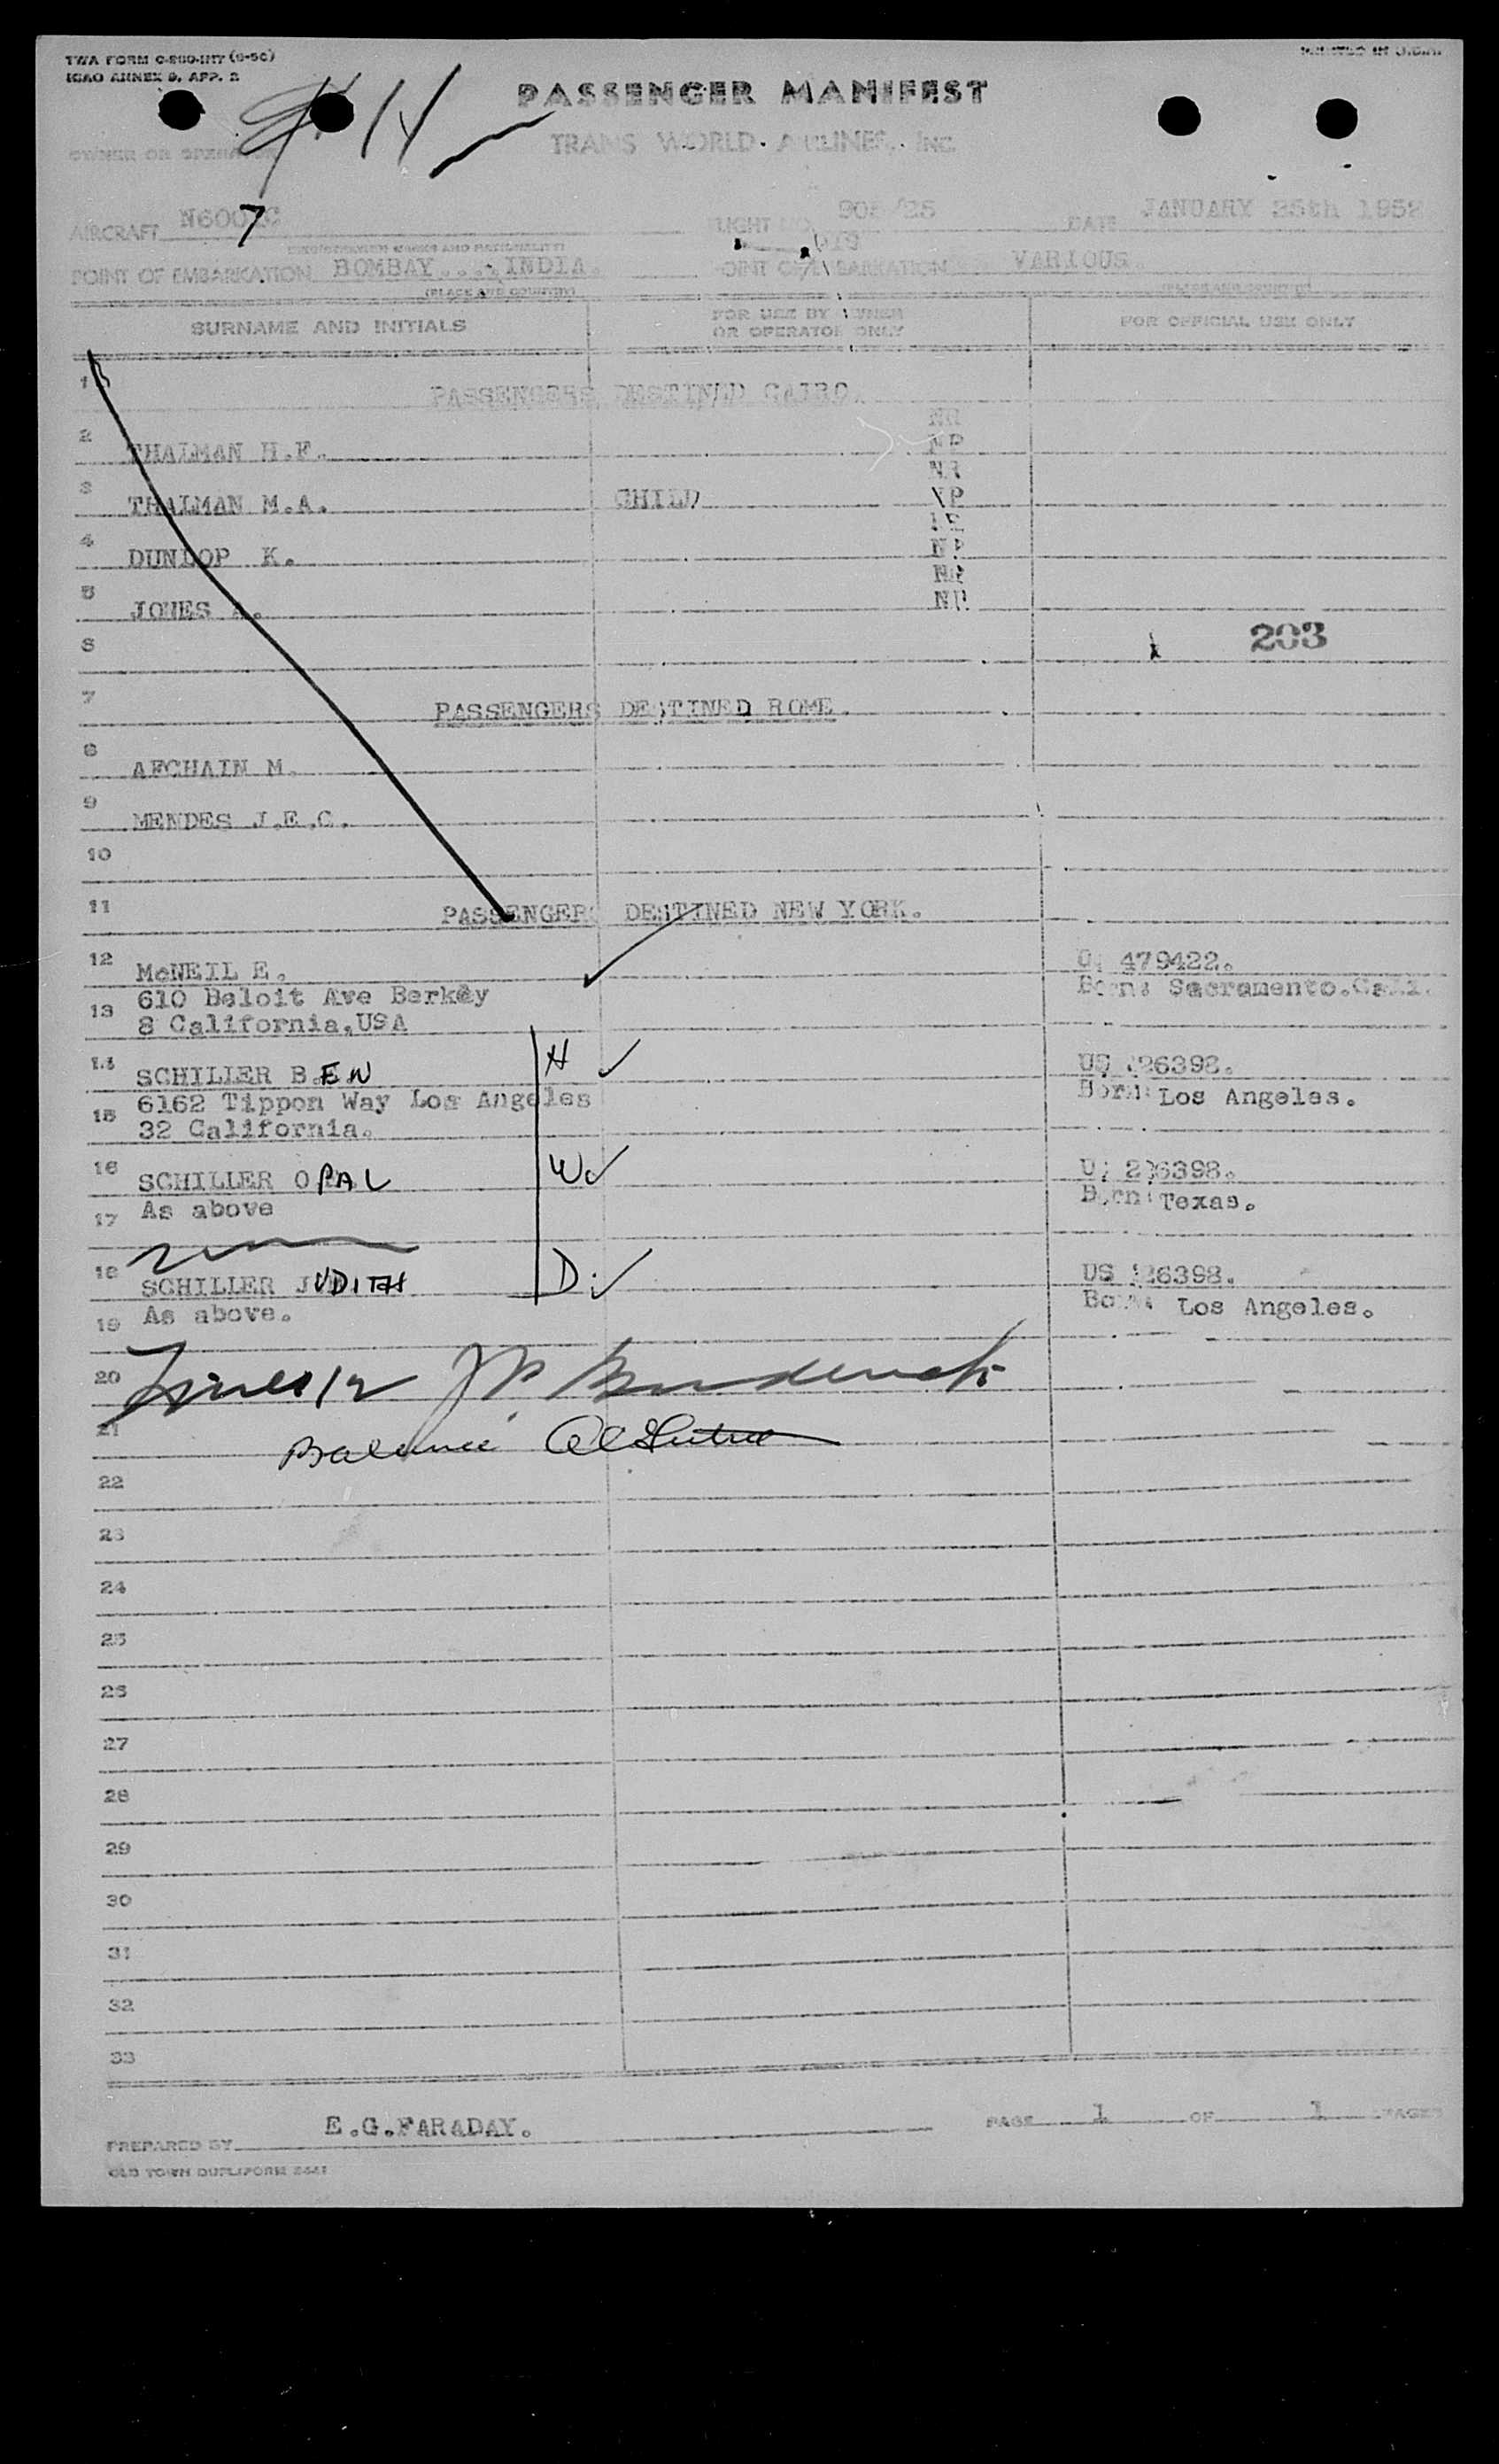 TWA FORM
ICAO ANNEX 9, APP. 2
PRINTED IN U.S.A.
PASSENGER MANIFEST
TRANS WORLD AIRLINES, INC.
OWNER OR OPERATOR
AIRCRAFT
FLIGHT NO.
DATE JANUARY 25th 1952
7
(REGISTRATION MARKS AND NATIONALITY)
POINT OF EMBARKATION BOMBAY....INDIA.
VARIOUS
(PLACE AND COUNTRY)
SURNAME AND INITIALS
FOR USE BY OWNER
OR OPERATOR ONLY
FOR OFFICIAL USE ONLY
1 PASSENGERS DESTINED CAIRO.
2 THALMAN H.F.
3 THALMAN M.A. CHILD
4 DUNLOP K.
5 JONES
6 203
7 PASSENGERS DESTINED ROME.
8 AFCHAIN M.
9 MENDES J.E.C.
10
11 PASSENGERS DESTINED NEW YORK.
12 McNEIL E. 479422.
13 610 Beloit Ave Berkey Born: Sacramento.Cali.
8 California,USA
14 SCHILLER BEN H
15 6162 Tippon Way Los Angeles Born: Los Angeles.
32 California.
16 SCHILLER OPAL W
17 As above Born: Texas.
18 SCHILLER JUDITH D
19 As above. Born: Los Angeles.
20
21 Balance
22
23
24
25
26
27
28
29
30
31
32
33
PREPARED BY E.G.FARADAY.
PAGE 1 OF 1 PAGES
OLD TOWN DUPLIFORM